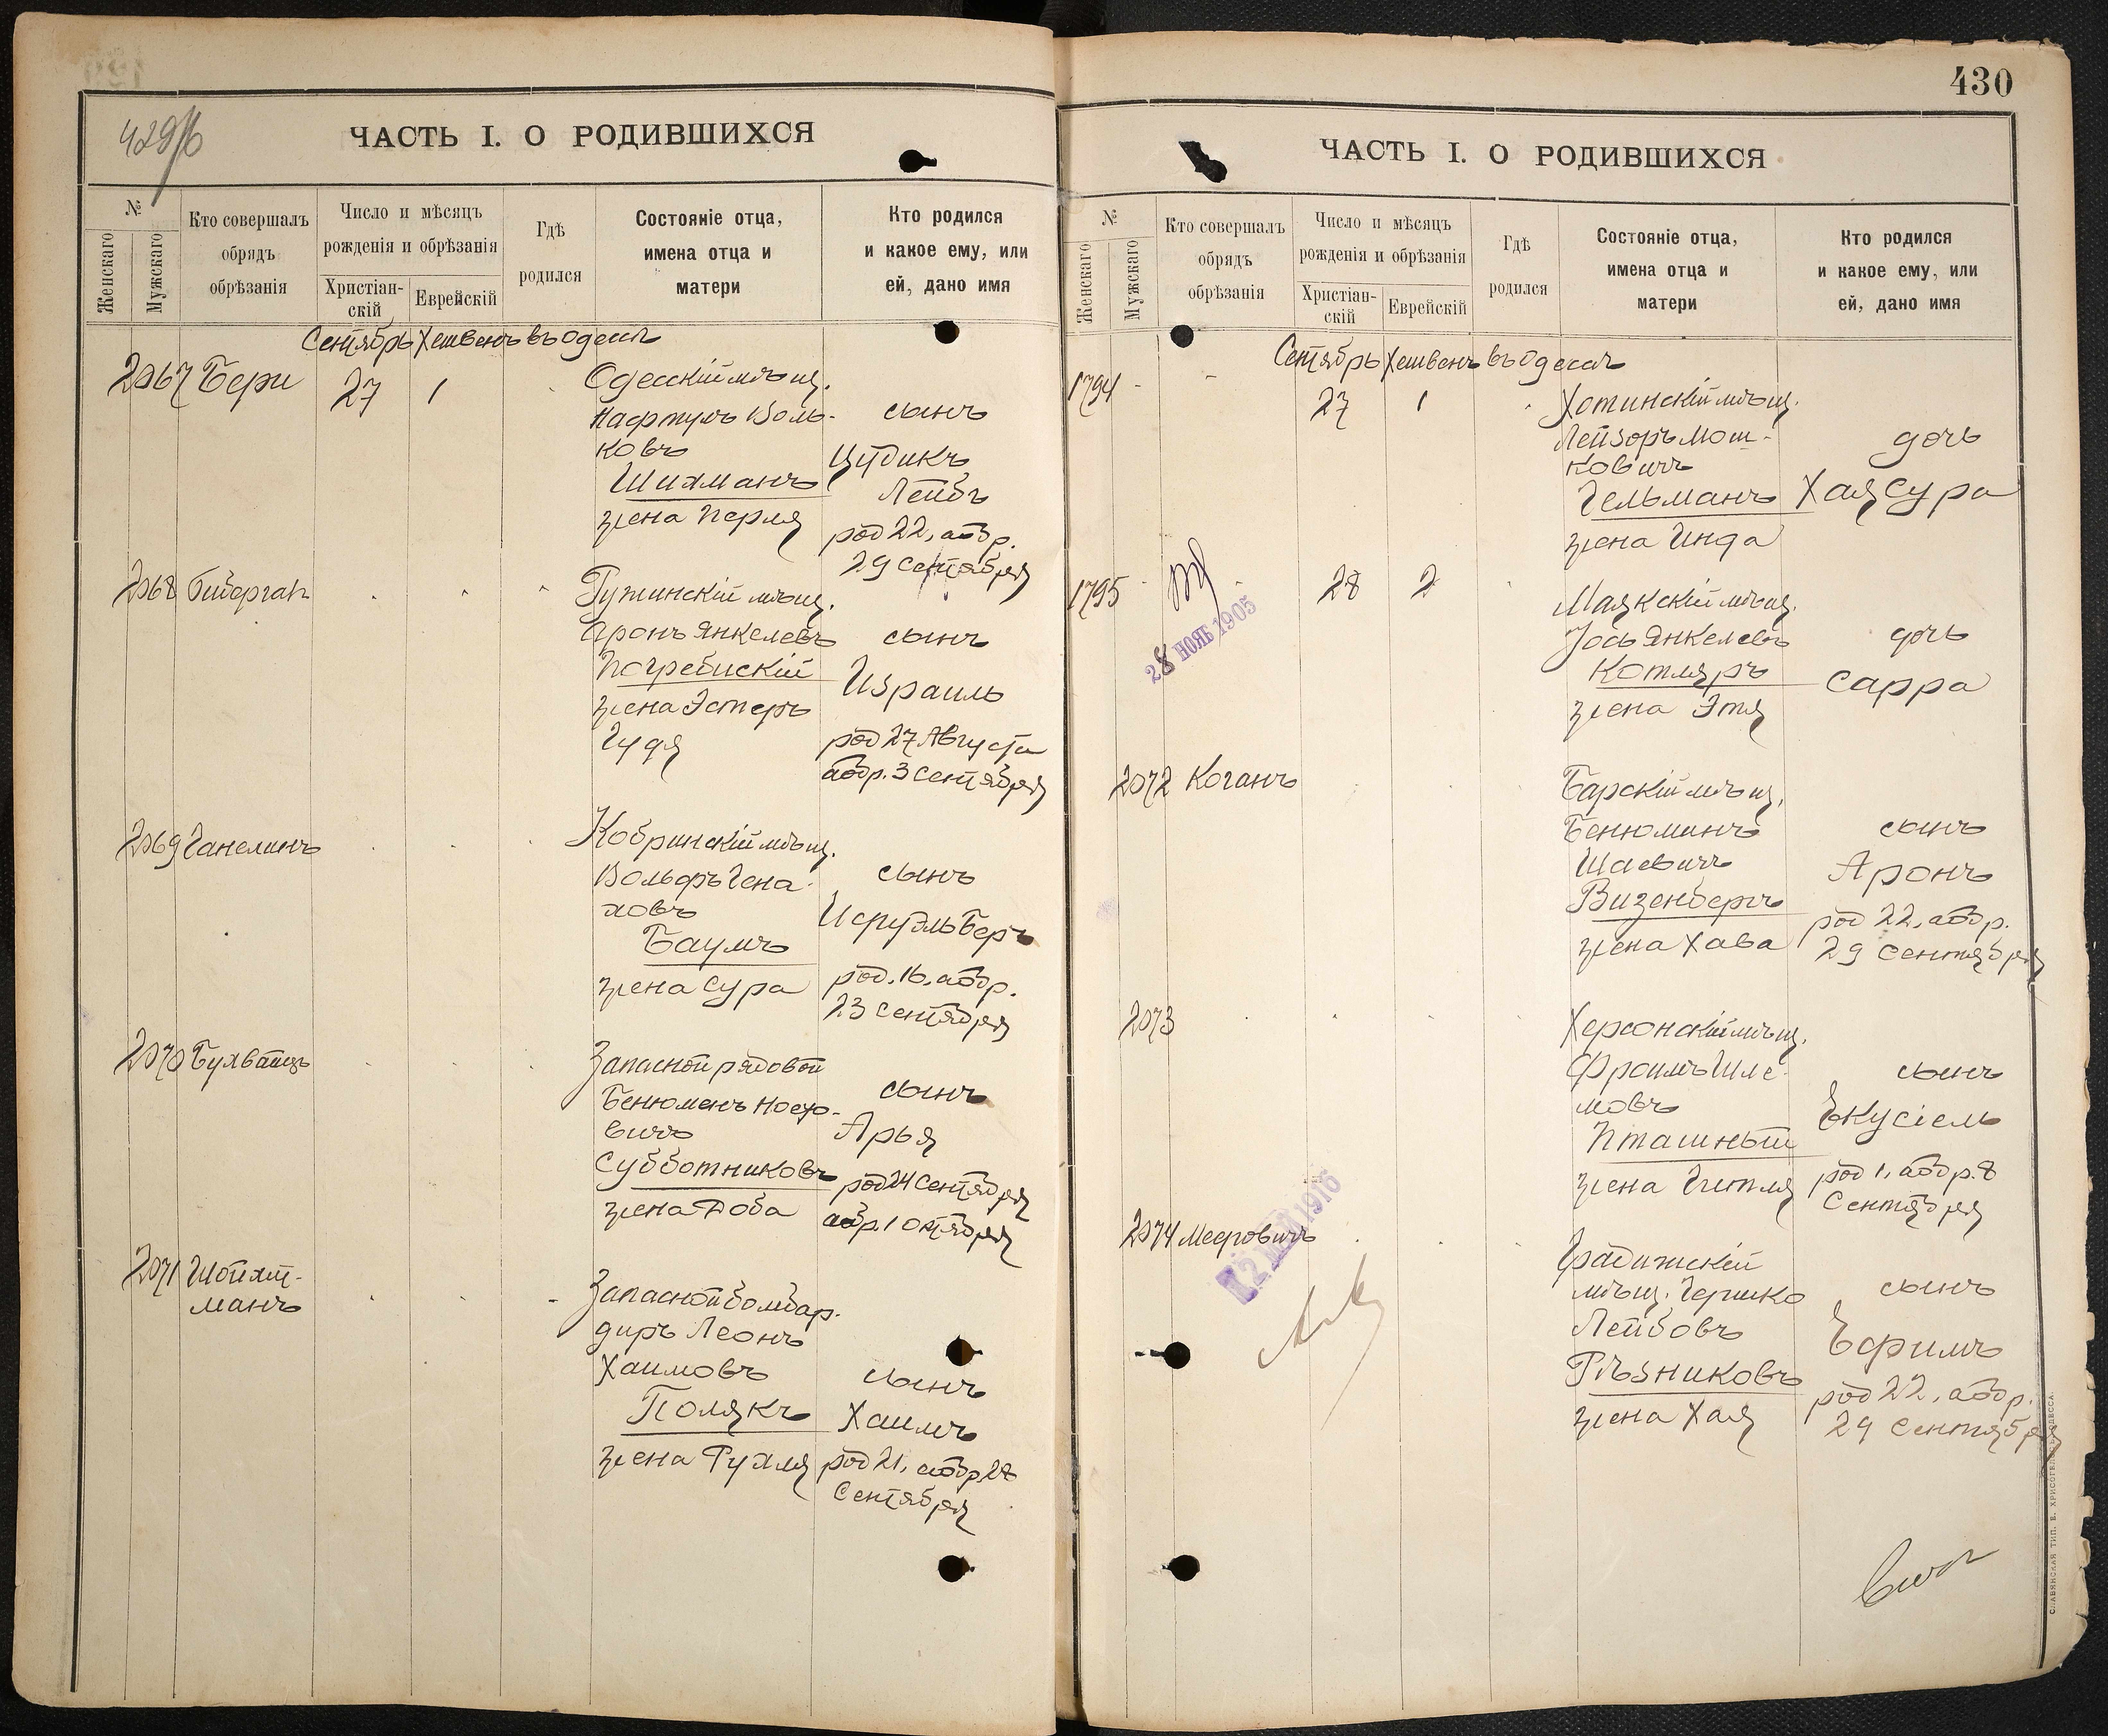 429/б
ЧАСТЬ I. О РОДИВШИХСЯ
№
Женскаго
Мужскаго
Кто совершалъ
обрядъ
обрѣзанія
Число и мѣсяцъ
рожденія и обрѣзанія
Христіан-
скій
Еврейскій
Гдѣ
родился
Состояніе отца,
имена отца и
матери
Кто родился
и какое ему, или
ей, дано имя
Сентябрь Хешвенъ въ Одессѣ
2067 Бери 27 1 Одесскій мѣщ.
Нафтулъ Воль-
ковъ
Шихманъ
жена Перля
сынъ
Цудикъ
Лейбъ
род 22, обр.
29 Сентября
2068 Гижинскій мѣщ.
Аронъ Янкелевъ
Погребискій
жена Эстеръ
Гудя
сынъ
Израиль
род 27 Августа
обр. 3 Сентября
2069 Ганелинъ Кобринскій мѣщ.
Вольфъ Гена-
ховъ
Баумъ
жена Сура
сынъ
Исруэль Беръ
род. 16, обр.
23 Сентября
2070 Бухвайцъ Запасной рядовой
Бенюменъ Носо-
вичъ
Субботниковъ
жена Доба
сынъ
Арья
род 24 Сентября
обр. 1 Октября
2071 Шойхт-
манъ
Запасной бомбар-
диръ Леонъ
Хаимовъ
Полякъ
жена Рухля
сынъ
Хаимъ
род 21, обр 28
Сентября
430
ЧАСТЬ I. О РОДИВШИХСЯ
№
Женскаго
Мужскаго
Кто совершалъ
обрядъ
обрѣзанія
Число и мѣсяцъ
рожденія и обрѣзанія
Христіан-
скій
Еврейскій
Гдѣ
родился
Состояніе отца,
имена отца и
матери
Кто родился
и какое ему, или
ей, дано имя
Сентябрь Хешвенъ въ Одессѣ
1794 27 1 Хотинскій мѣщ.
Лейзоръ Мош-
ковичъ
Гельманъ
жена Инда
дочь
Хая Сура
1795 28 2 Маякскій мѣщ.
Іось Янкелевъ
Котляръ
жена Этя
дочь
Сарра
28 НОЯБ 1905
2072 Коганъ Барскій мѣщ.
Бенюминъ
Шаевичъ
Визенбергъ
жена Хава
сынъ
Аронъ
род 22, обр.
29 Сентября
2073 Херсонскій мѣщ.
Фроимъ Шле-
мовъ
Пташный
жена Гитля
сынъ
Екусіель
род 1, обр. 8
Сентября
2074 Меировичъ Градижскій
мѣщ. Гершко
Лейбовъ
Рѣзниковъ
жена Хая
сынъ
Ефимъ
род 22, обр.
29 Сентября
12 МАЙ 1916
СЛАВЯНСКАЯ ТИП. Е. ХРИСОГЕЛОСЪ, ОДЕССА